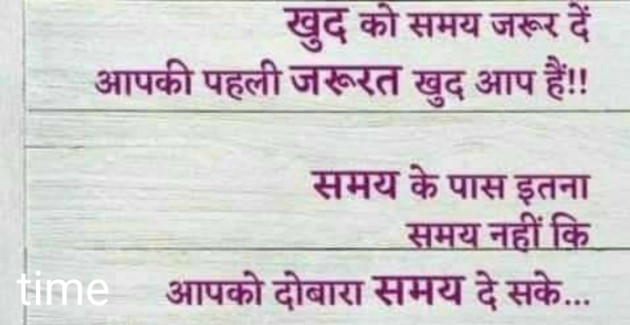 खुद को समय जरूर दें
आपकी पहली जरूरत खुद आप हैं!!
समय के पास इतना
समय नहीं कि
आपको दोबारा समय दे सके...
time